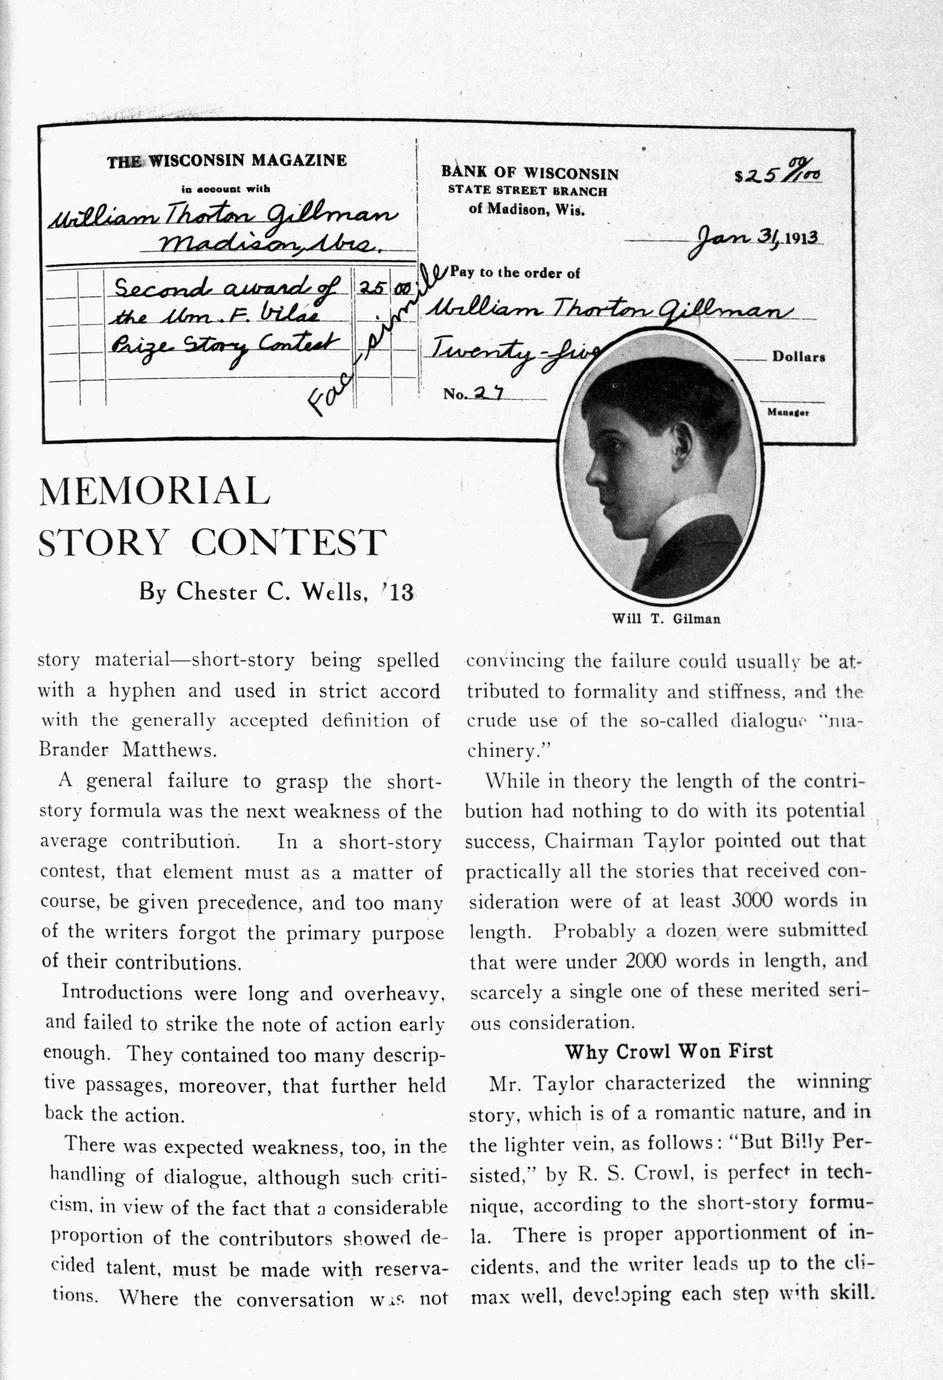 THE WISCONSIN MAGAZINE
in account with
William Thorton Gillman
Madison, Wis.
Second award of 25 00
the Wm. F. Vilas
Prize Story Contest
Fac-simile
BANK OF WISCONSIN
STATE STREET BRANCH
of Madison, Wis.
$25 00/100
Jan 31, 1913
Pay to the order of
William Thorton Gillman
Twenty-five Dollars
No. 27
Manager
MEMORIAL
STORY CONTEST
By Chester C. Wells, '13
Will T. Gilman
story material—short-story being spelled
with a hyphen and used in strict accord
with the generally accepted definition of
Brander Matthews.
A general failure to grasp the short-
story formula was the next weakness of the
average contribution. In a short-story
contest, that element must as a matter of
course, be given precedence, and too many
of the writers forgot the primary purpose
of their contributions.
Introductions were long and overheavy,
and failed to strike the note of action early
enough. They contained too many descrip-
tive passages, moreover, that further held
back the action.
There was expected weakness, too, in the
handling of dialogue, although such criti-
cism, in view of the fact that a considerable
proportion of the contributors showed de-
cided talent, must be made with reserva-
tions. Where the conversation was not
convincing the failure could usually be at-
tributed to formality and stiffness, and the
crude use of the so-called dialogue "ma-
chinery."
While in theory the length of the contri-
bution had nothing to do with its potential
success, Chairman Taylor pointed out that
practically all the stories that received con-
sideration were of at least 3000 words in
length. Probably a dozen were submitted
that were under 2000 words in length, and
scarcely a single one of these merited seri-
ous consideration.
Why Crowl Won First
Mr. Taylor characterized the winning
story, which is of a romantic nature, and in
the lighter vein, as follows: "But Billy Per-
sisted," by R. S. Crowl, is perfect in tech-
nique, according to the short-story formu-
la. There is proper apportionment of in-
cidents, and the writer leads up to the cli-
max well, developing each step with skill.